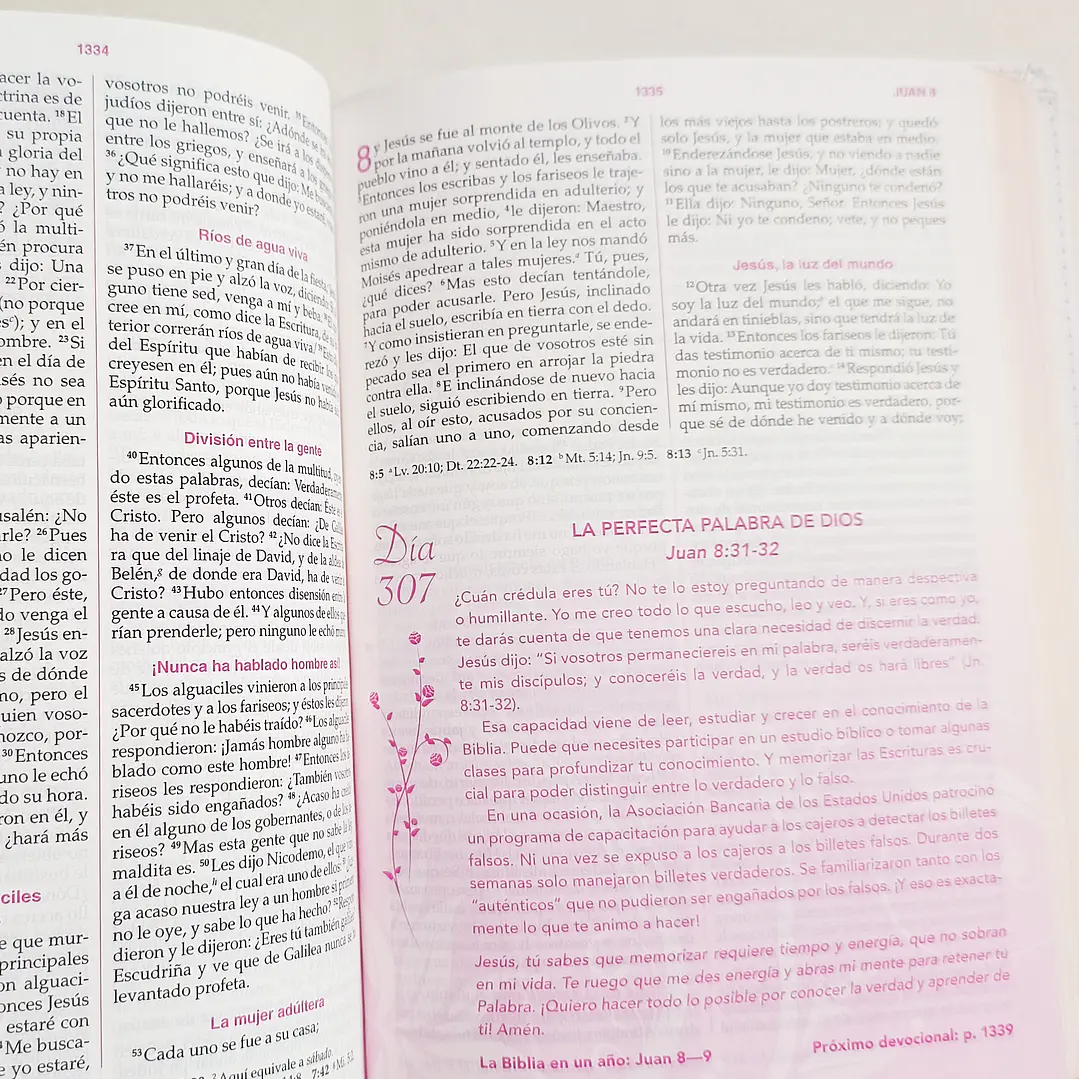 1334
acer la vo-
ctrina es de
cuenta. 18El
su propia
gloria del
no hay en
a ley, y nin-
? ¿Por qué
ó la multi-
én procura
dijo: Una
22Por cier-
(no porque
esᶜ); y en el
ombre. 23Si
en el día de
isés no sea
porque en
mente a un
as aparien-
usalén: ¿No
rle? 26Pues
no le dicen
dad los go-
27Pero éste,
do venga el
28Jesús en-
alzó la voz
s de dónde
mo, pero el
quien voso-
nozco, por-
30Entonces
uno le echó
do su hora.
ron en él, y
¿hará más
ciles
e que mur-
principales
on alguaci-
onces Jesús
estaré con
Me busca-
e yo estaré,
vosotros no podréis venir. 35Entonces
judíos dijeron entre sí: ¿Adónde se
que no le hallemos? ¿Se irá a los
entre los griegos, y enseñará a los
36¿Qué significa esto que dijo: Me
y no me hallaréis; y a donde yo
tros no podréis venir?
Ríos de agua viva
37En el último y gran día de la fiesta,
se puso en pie y alzó la voz, diciendo:
guno tiene sed, venga a mí y beba.
cree en mí, como dice la Escritura, de
terior correrán ríos de agua viva.
del Espíritu que habían de recibir los
creyesen en él; pues aún no había
Espíritu Santo, porque Jesús no había
aún glorificado.
División entre la gente
40Entonces algunos de la multitud,
do estas palabras, decían: Verdaderamente
éste es el profeta. 41Otros decían: Éste
Cristo. Pero algunos decían: ¿De
ha de venir el Cristo? 42¿No dice la
ra que del linaje de David, y de la aldea
Belén,ᵍ de donde era David, ha de
Cristo? 43Hubo entonces disensión entre
gente a causa de él. 44Y algunos de ellos
rían prenderle; pero ninguno le echó
¡Nunca ha hablado hombre así!
45Los alguaciles vinieron a los principales
sacerdotes y a los fariseos; y éstos les dijeron:
¿Por qué no le habéis traído? 46Los
respondieron: ¡Jamás hombre alguno ha
blado como este hombre! 47Entonces los
riseos les respondieron: ¿También
habéis sido engañados? 48¿Acaso ha
en él alguno de los gobernantes, o de los
riseos? 49Mas esta gente que no sabe la
maldita es. 50Les dijo Nicodemo, el que
a él de noche,ʰ el cual era uno de ellos:
ga acaso nuestra ley a un hombre si
no le oye, y sabe lo que ha hecho?
dieron y le dijeron: ¿Eres tú también
Escudriña y ve que de Galilea nunca se
levantado profeta.
La mujer adúltera
53Cada uno se fue a su casa;
Aquí equivale a sábado.
7:42
1335 JUAN 8
8 y Jesús se fue al monte de los Olivos. 2Y
por la mañana volvió al templo, y todo el
pueblo vino a él; y sentado él, les enseñaba.
3Entonces los escribas y los fariseos le traje-
ron una mujer sorprendida en adulterio; y
poniéndola en medio, 4le dijeron: Maestro,
esta mujer ha sido sorprendida en el acto
mismo de adulterio. 5Y en la ley nos mandó
Moisés apedrear a tales mujeres.ᵃ Tú, pues,
¿qué dices? 6Mas esto decían tentándole,
para poder acusarle. Pero Jesús, inclinado
hacia el suelo, escribía en tierra con el dedo.
7Y como insistieran en preguntarle, se ende-
rezó y les dijo: El que de vosotros esté sin
pecado sea el primero en arrojar la piedra
contra ella. 8E inclinándose de nuevo hacia
el suelo, siguió escribiendo en tierra. 9Pero
ellos, al oír esto, acusados por su concien-
cia, salían uno a uno, comenzando desde
los más viejos hasta los postreros; y quedó
solo Jesús, y la mujer que estaba en medio.
10Enderezándose Jesús, y no viendo a nadie
sino a la mujer, le dijo: Mujer, ¿dónde están
los que te acusaban? ¿Ninguno te condenó?
11Ella dijo: Ninguno, Señor. Entonces Jesús
le dijo: Ni yo te condeno; vete, y no peques
más.
Jesús, la luz del mundo
12Otra vez Jesús les habló, diciendo: Yo
soy la luz del mundo;ᵇ el que me sigue, no
andará en tinieblas, sino que tendrá la luz de
la vida. 13Entonces los fariseos le dijeron: Tú
das testimonio acerca de ti mismo; tu testi-
monio no es verdadero.ᶜ 14Respondió Jesús y
les dijo: Aunque yo doy testimonio acerca de
mí mismo, mi testimonio es verdadero, por-
que sé de dónde he venido y a dónde voy;
8:5 ᵃLv. 20:10; Dt. 22:22-24. 8:12 ᵇMt. 5:14; Jn. 9:5. 8:13 ᶜJn. 5:31.
Día
307
LA PERFECTA PALABRA DE DIOS
Juan 8:31-32
¿Cuán crédula eres tú? No te lo estoy preguntando de manera despectiva
o humillante. Yo me creo todo lo que escucho, leo y veo. Y, si eres como yo,
te darás cuenta de que tenemos una clara necesidad de discernir la verdad.
Jesús dijo: “Si vosotros permaneciereis en mi palabra, seréis verdaderamen-
te mis discípulos; y conoceréis la verdad, y la verdad os hará libres” (Jn.
8:31-32).
Esa capacidad viene de leer, estudiar y crecer en el conocimiento de la
Biblia. Puede que necesites participar en un estudio bíblico o tomar algunas
clases para profundizar tu conocimiento. Y memorizar las Escrituras es cru-
cial para poder distinguir entre lo verdadero y lo falso.
En una ocasión, la Asociación Bancaria de los Estados Unidos patrocinó
un programa de capacitación para ayudar a los cajeros a detectar los billetes
falsos. Ni una vez se expuso a los cajeros a los billetes falsos. Durante dos
semanas solo manejaron billetes verdaderos. Se familiarizaron tanto con los
“auténticos” que no pudieron ser engañados por los falsos. ¡Y eso es exacta-
mente lo que te animo a hacer!
Jesús, tú sabes que memorizar requiere tiempo y energía, que no sobran
en mi vida. Te ruego que me des energía y abras mi mente para retener tu
Palabra. ¡Quiero hacer todo lo posible por conocer la verdad y aprender de
ti! Amén.
La Biblia en un año: Juan 8—9
Próximo devocional: p. 1339